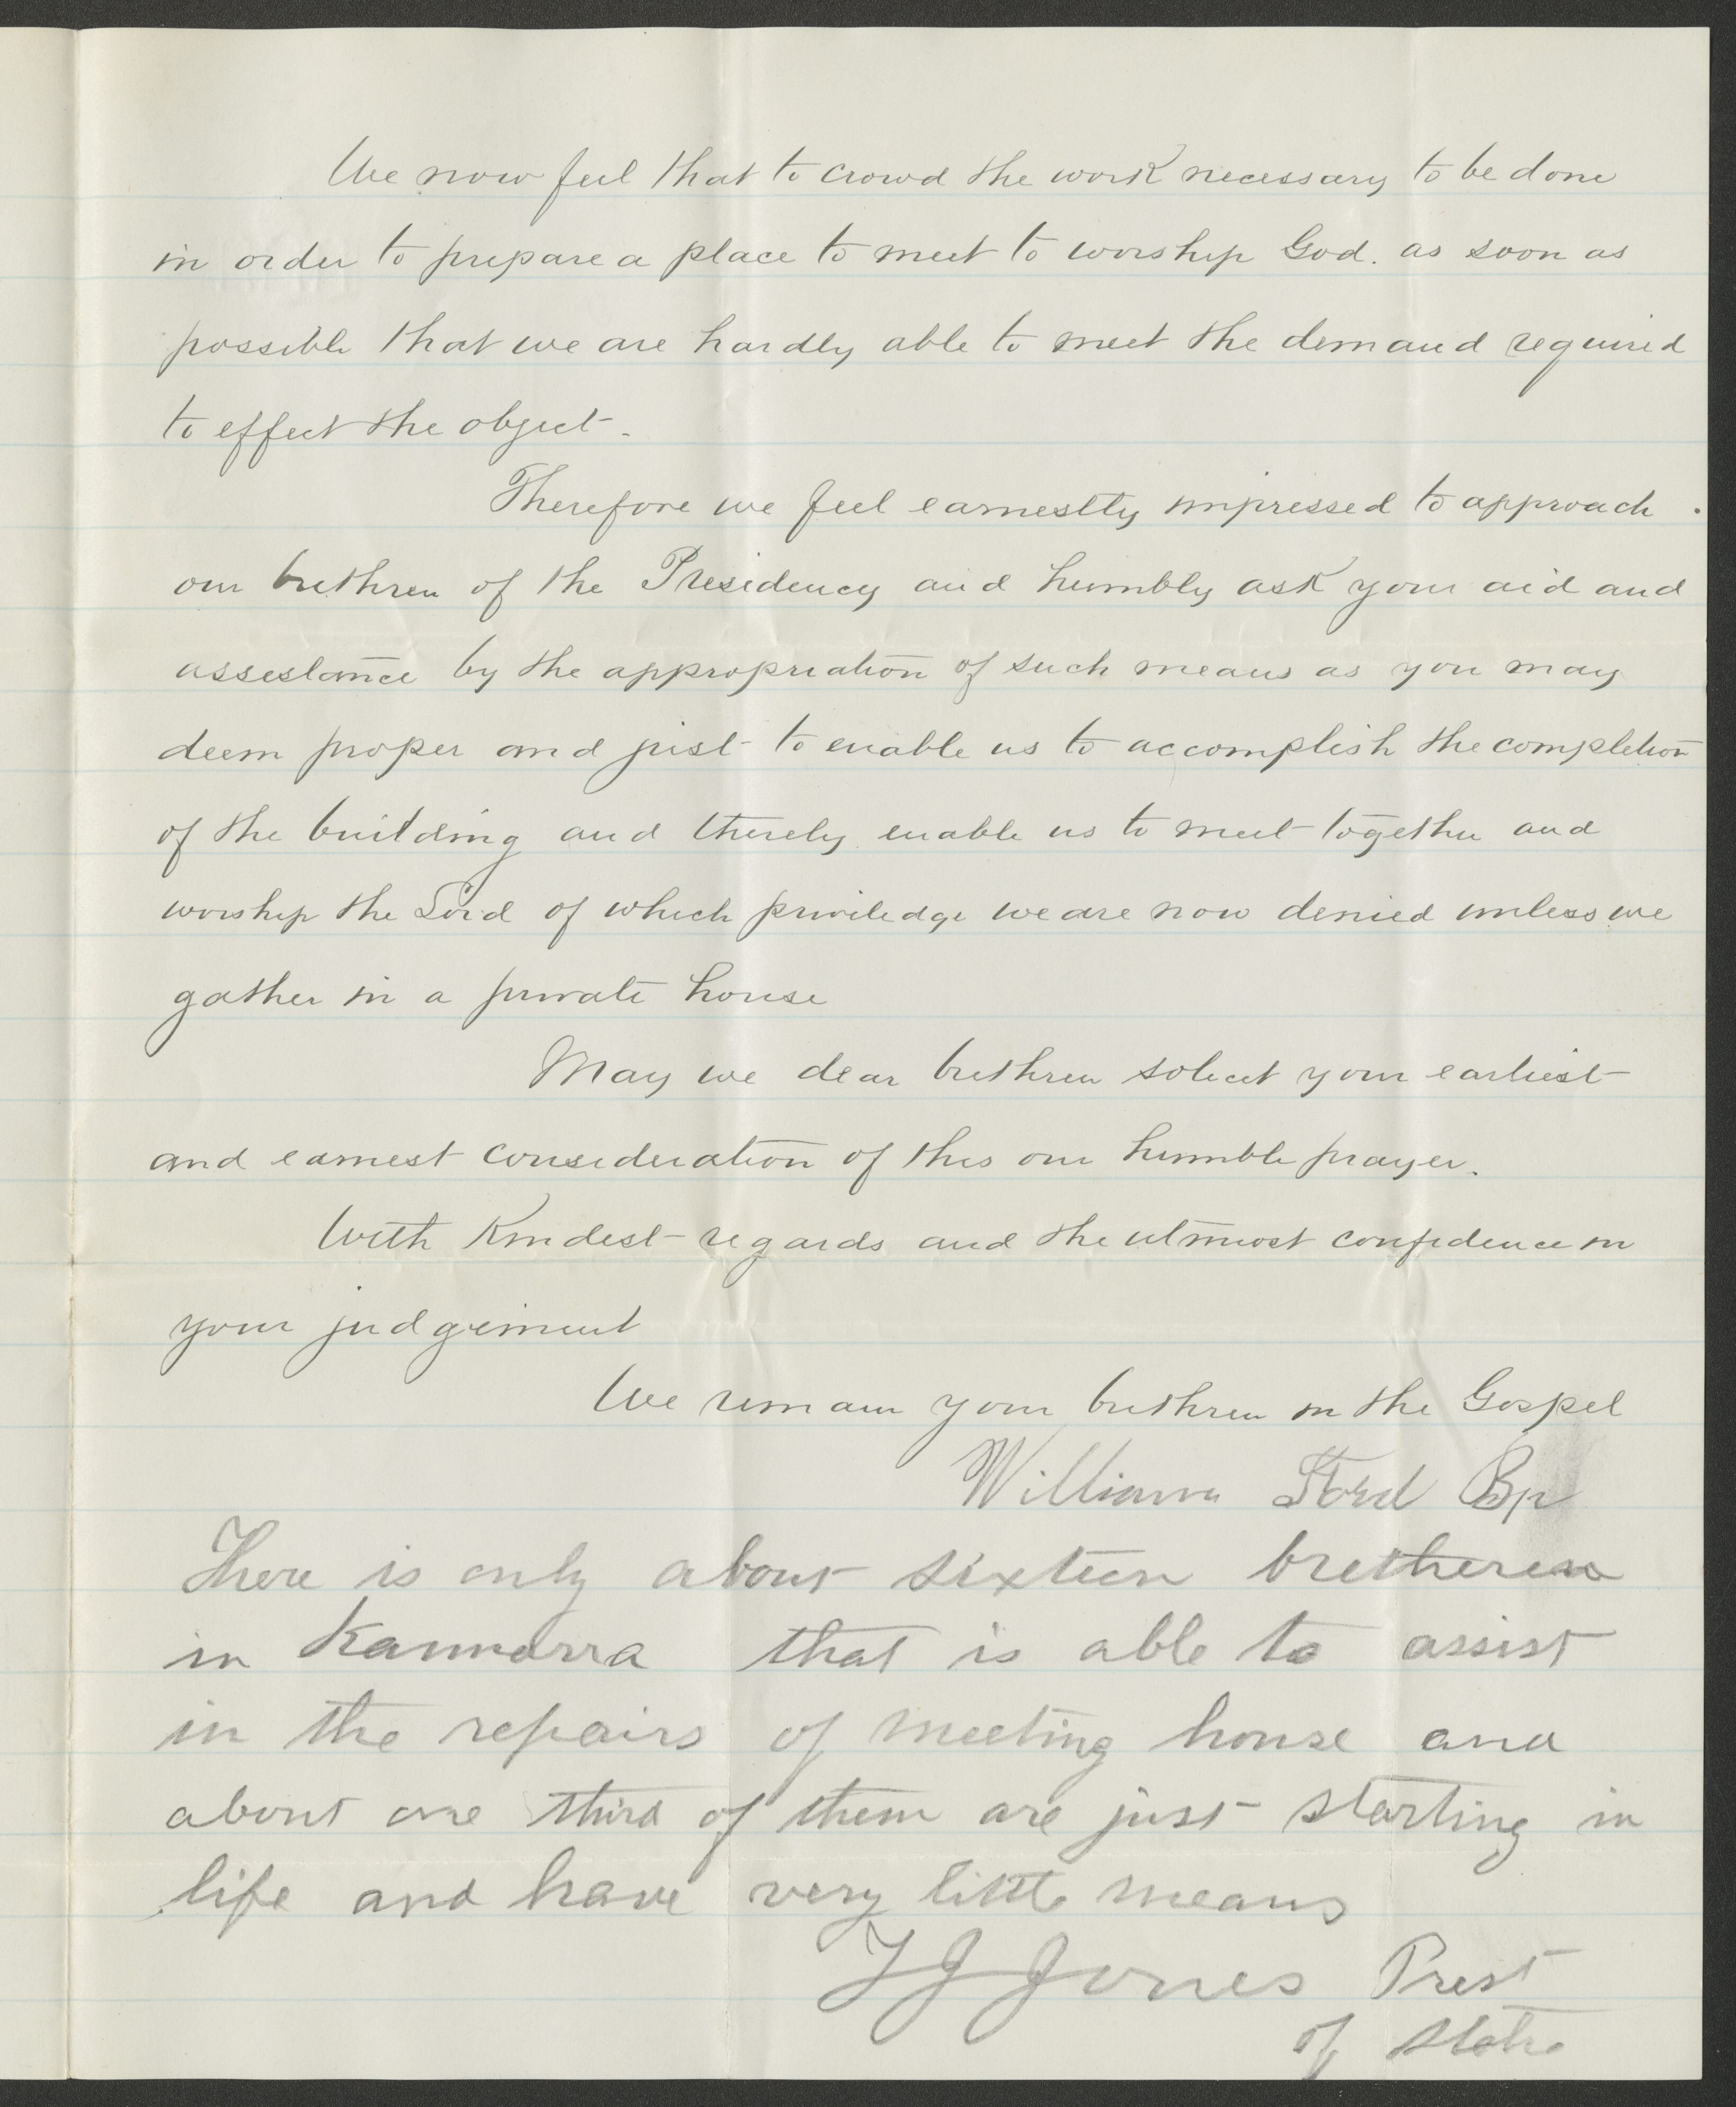 We now feel that to crowd the work necessary to be done
in order to prepare a place to meet to worship God. as soon as
possible that we are hardly able to meet the demand required
to effect the object.
Therefore we feel earnestly impressed to approach
our brethren of the Presidency and humbly ask your aid and
assestance by the appropriation of such means as you may
deem proper and just to enable us to accomplish the completion
of the building and thereby enable us to meet together and
worship the Lord of which priviledge we are now denied unless we
gather in a private house
May we dear brethren solicit your earliest
and earnest consideration of this our humble prayer.
With Kindest regards and the utmost confidence in
your judgement
We remain your brethren in the Gospel
William Ford Bp
There is only about sixteen bretheren
in Kannarra that is able to assist
in the repairs of meeting house and
about one third of them are just starting in
life and have very little means
TJ Jones Prest
of Stake